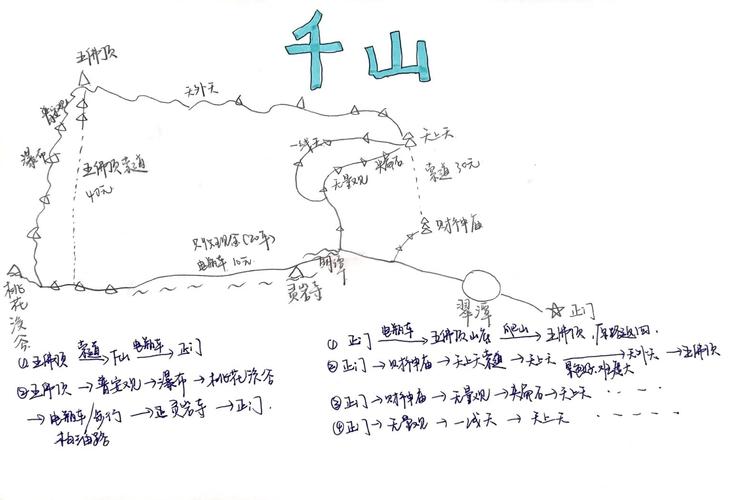 千山
五佛顶
天外天
普安观
瀑布
五佛顶索道
40元
一线天
天上天
无量观
夹扁石
索道30元
财神庙
只收现金(20年)
电瓶车10元
明潭
灵岩寺
桃花溪谷
翠潭
正门
①五佛顶 索道→下山 电瓶车→正门
②五佛顶→普安观→瀑布→桃花溪谷
→电瓶车/步行→灵岩寺→正门.
柏油路
①正门 电瓶车→五佛顶山底 爬山→五佛顶,原路返回.
②正门→财神庙→天上天索道→天上天→天外天→五佛顶
③正门→财神庙→无量观→夹扁石→天上天→
④正门→无量观→一线天→天上天